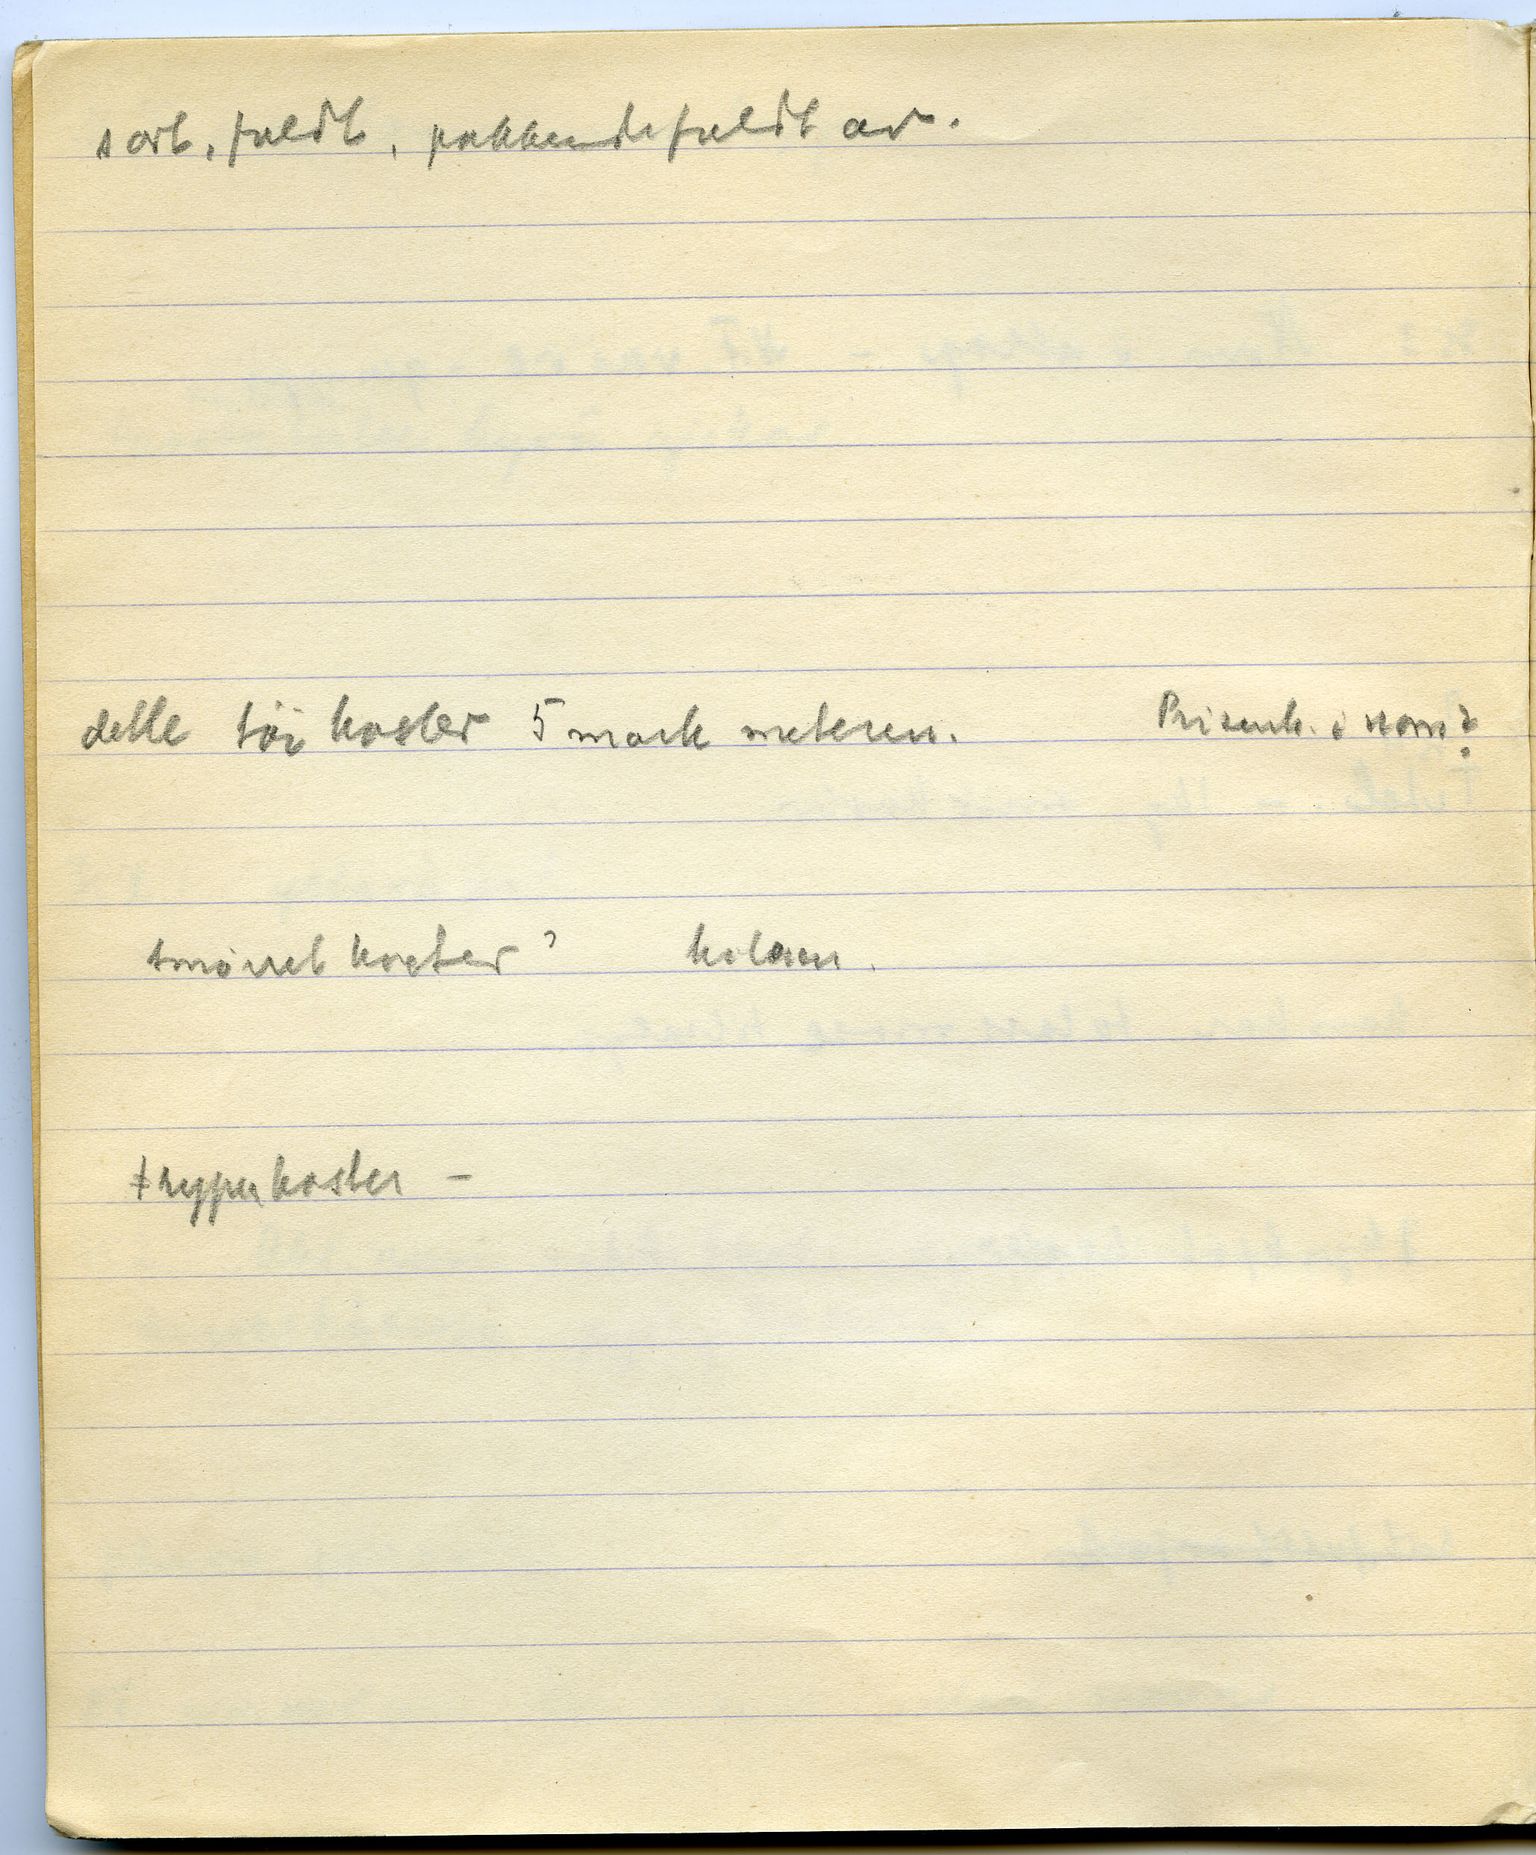 sort. faldt, pakkendefaldt av.
dette töi koster 5 mark meteren. Prisenh. i nom?
smörret koster? kiloen.
rypper koster –